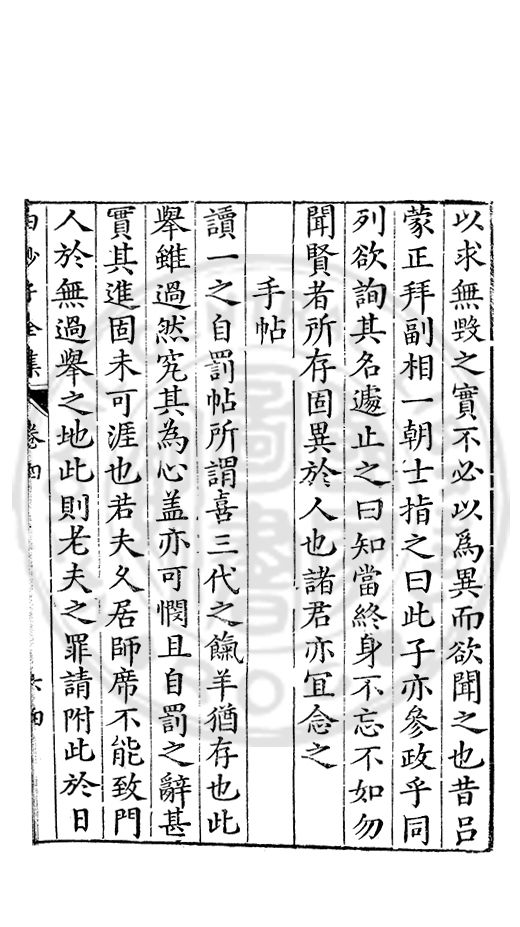 以求無毀之實不必以爲異而欲聞之也昔呂
蒙正拜副相一朝士指之曰此子亦參政乎同
列欲詢其名遽止之曰知當終身不忘不如勿
聞賢者所存固異於人也諸君亦宜念之
手帖
讀一之自罰帖所謂喜三代之餼羊猶存也此
舉雖過然究其為心盖亦可憫且自罰之辭甚
實其進固未可涯也若夫久居師席不能致門
人於無過舉之地此則老夫之罪請附此於日
全集 卷四